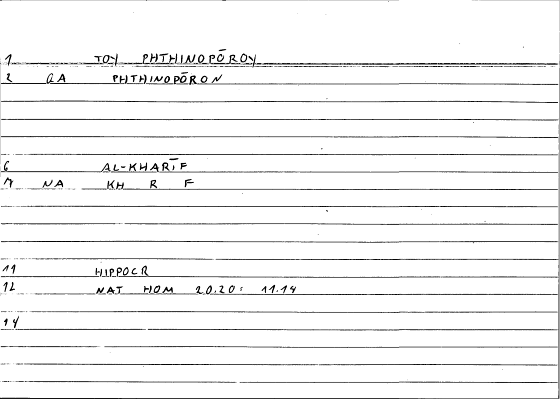 1 TOY PHTHINOPŌROY
2 GA PHTHINOPŌRON
6 AL-KHARĪF
7 NA KH R F
11 HIPPOCR
12 NAT HOM 20.20: 11.14
14